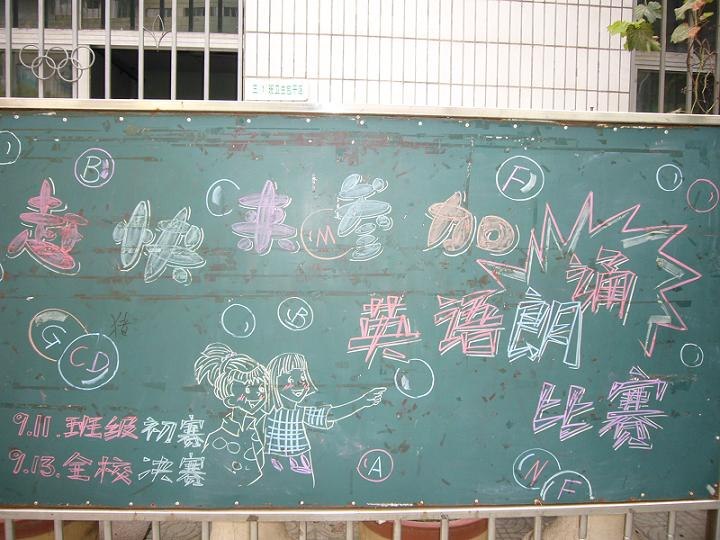 三.1.班卫生包干区
B F
赶快来参加
M
诵
英语朗
B
G
猪
CD
比赛
9.11.班级初赛
9.13.全校决赛
A
N F